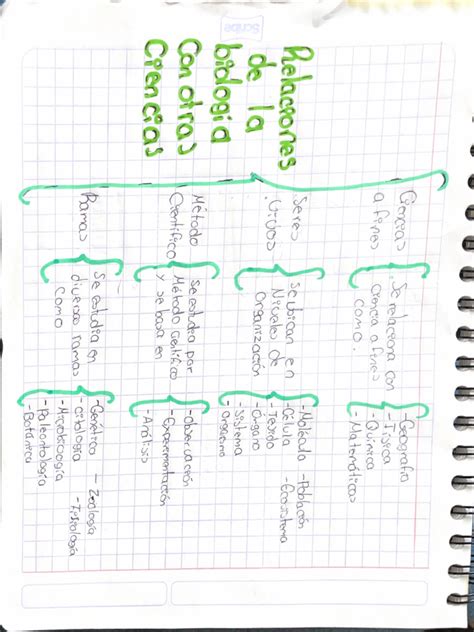 Scribe
Relaciones
de la
biología
Con otras
Ciencias
Ciencias
a fines
Se relaciona con
Ciencia a fines
como.
- Geografía
- Física
- Química
- Matemáticas
Seres
Vivos
Se ubican en
Niveles de
Organización
- Molecula - Población
- Célula - Ecosistema
- Tejido
- Órgano
- Sistema
- Organismo
Método
Científico
Se estudia por
Método científico
y se basa en
- observación
- Experimentación
- Análisis
Ramas
Se estudia en
diversas ramas
como
- Genética - Zoología
- citología - Fisiología
- Microbiología
- Paleontología
- Botánica